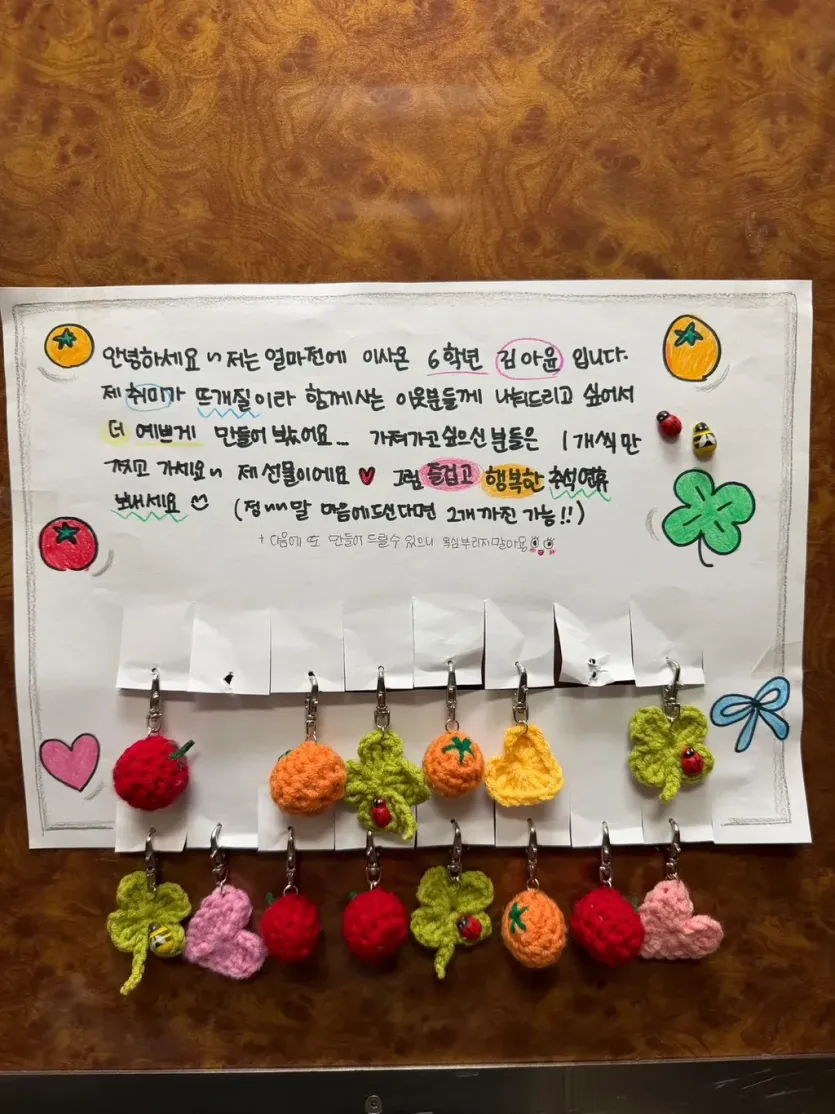 안녕하세요~ 저는 얼마전에 이사온 6학년 김아윤 입니다.
제 취미가 뜨개질이라 함께사는 이웃분들께 나눠드리고 싶어서
더 예쁘게 만들어 봤어요... 가져가고싶으신 분들은 1개씩만
가지고 가세요~ 제 선물이에요 ♥ 그럼 즐겁고 행복한 추석연휴
보내세요 (정~~말 마음에드신다면 2개까진 가능!!)
+ 다음에 또 만들어 드릴수 있으니 욕심부리지말아용